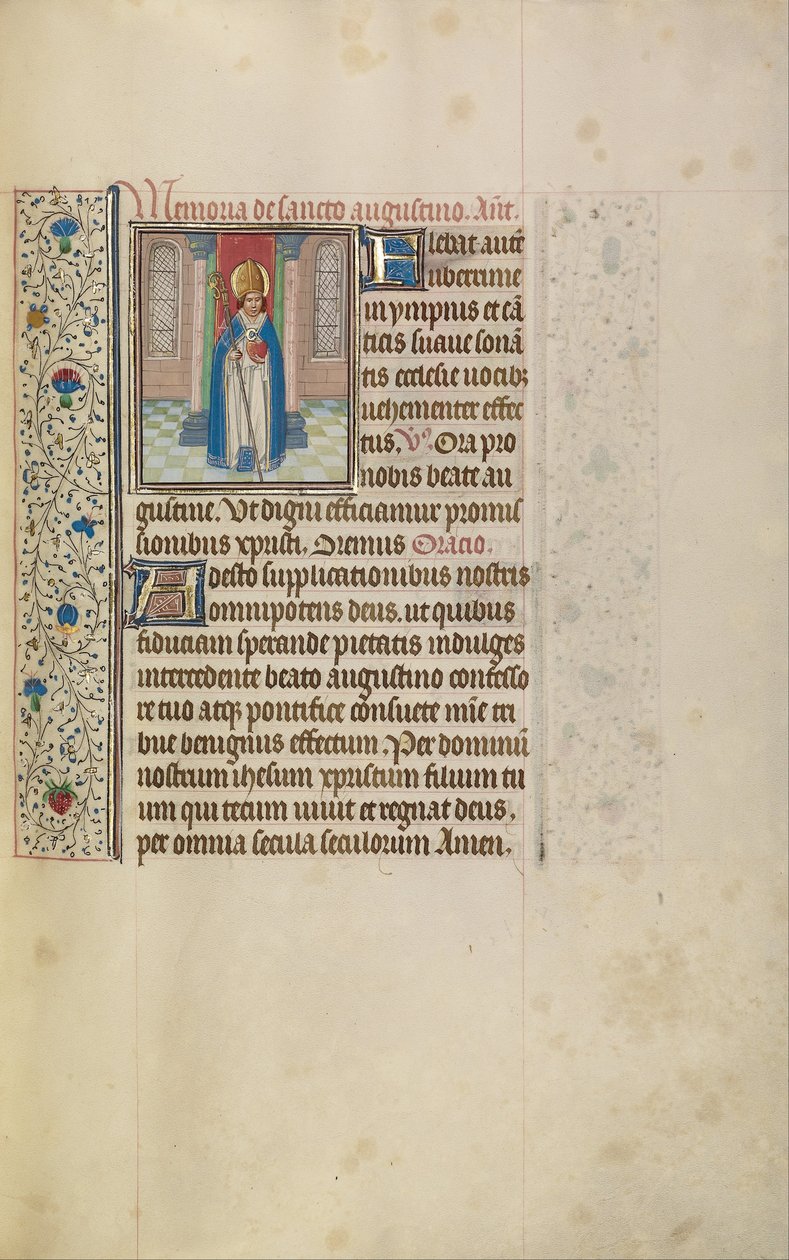 Memoria de sancto augustino. Añt.
Flebat aute͞
uberrime
in ympnis et ca͞
ticis suaue sona͞
tis ecclesie uocibꝫ
uehementer effec
tus. V̉. Ora pro
nobis beate au
gustine. Vt digni efficiamur promis
sionibus xpristi. Oremus Oracio.
Adesto supplicationibus nostris
omnipotens deus. ut quibus
fiduciam sperande pietatis indulges
intercedente beato augustino confesso
re tuo atqꝫ pontifice co͞suete mi͞e tri
bue benignus effectum. Per dominu͞
nostrum ihesum xpristum filium tu
um qui tecum uiuit et regnat deus.
per omnia secula seculorum Amen.